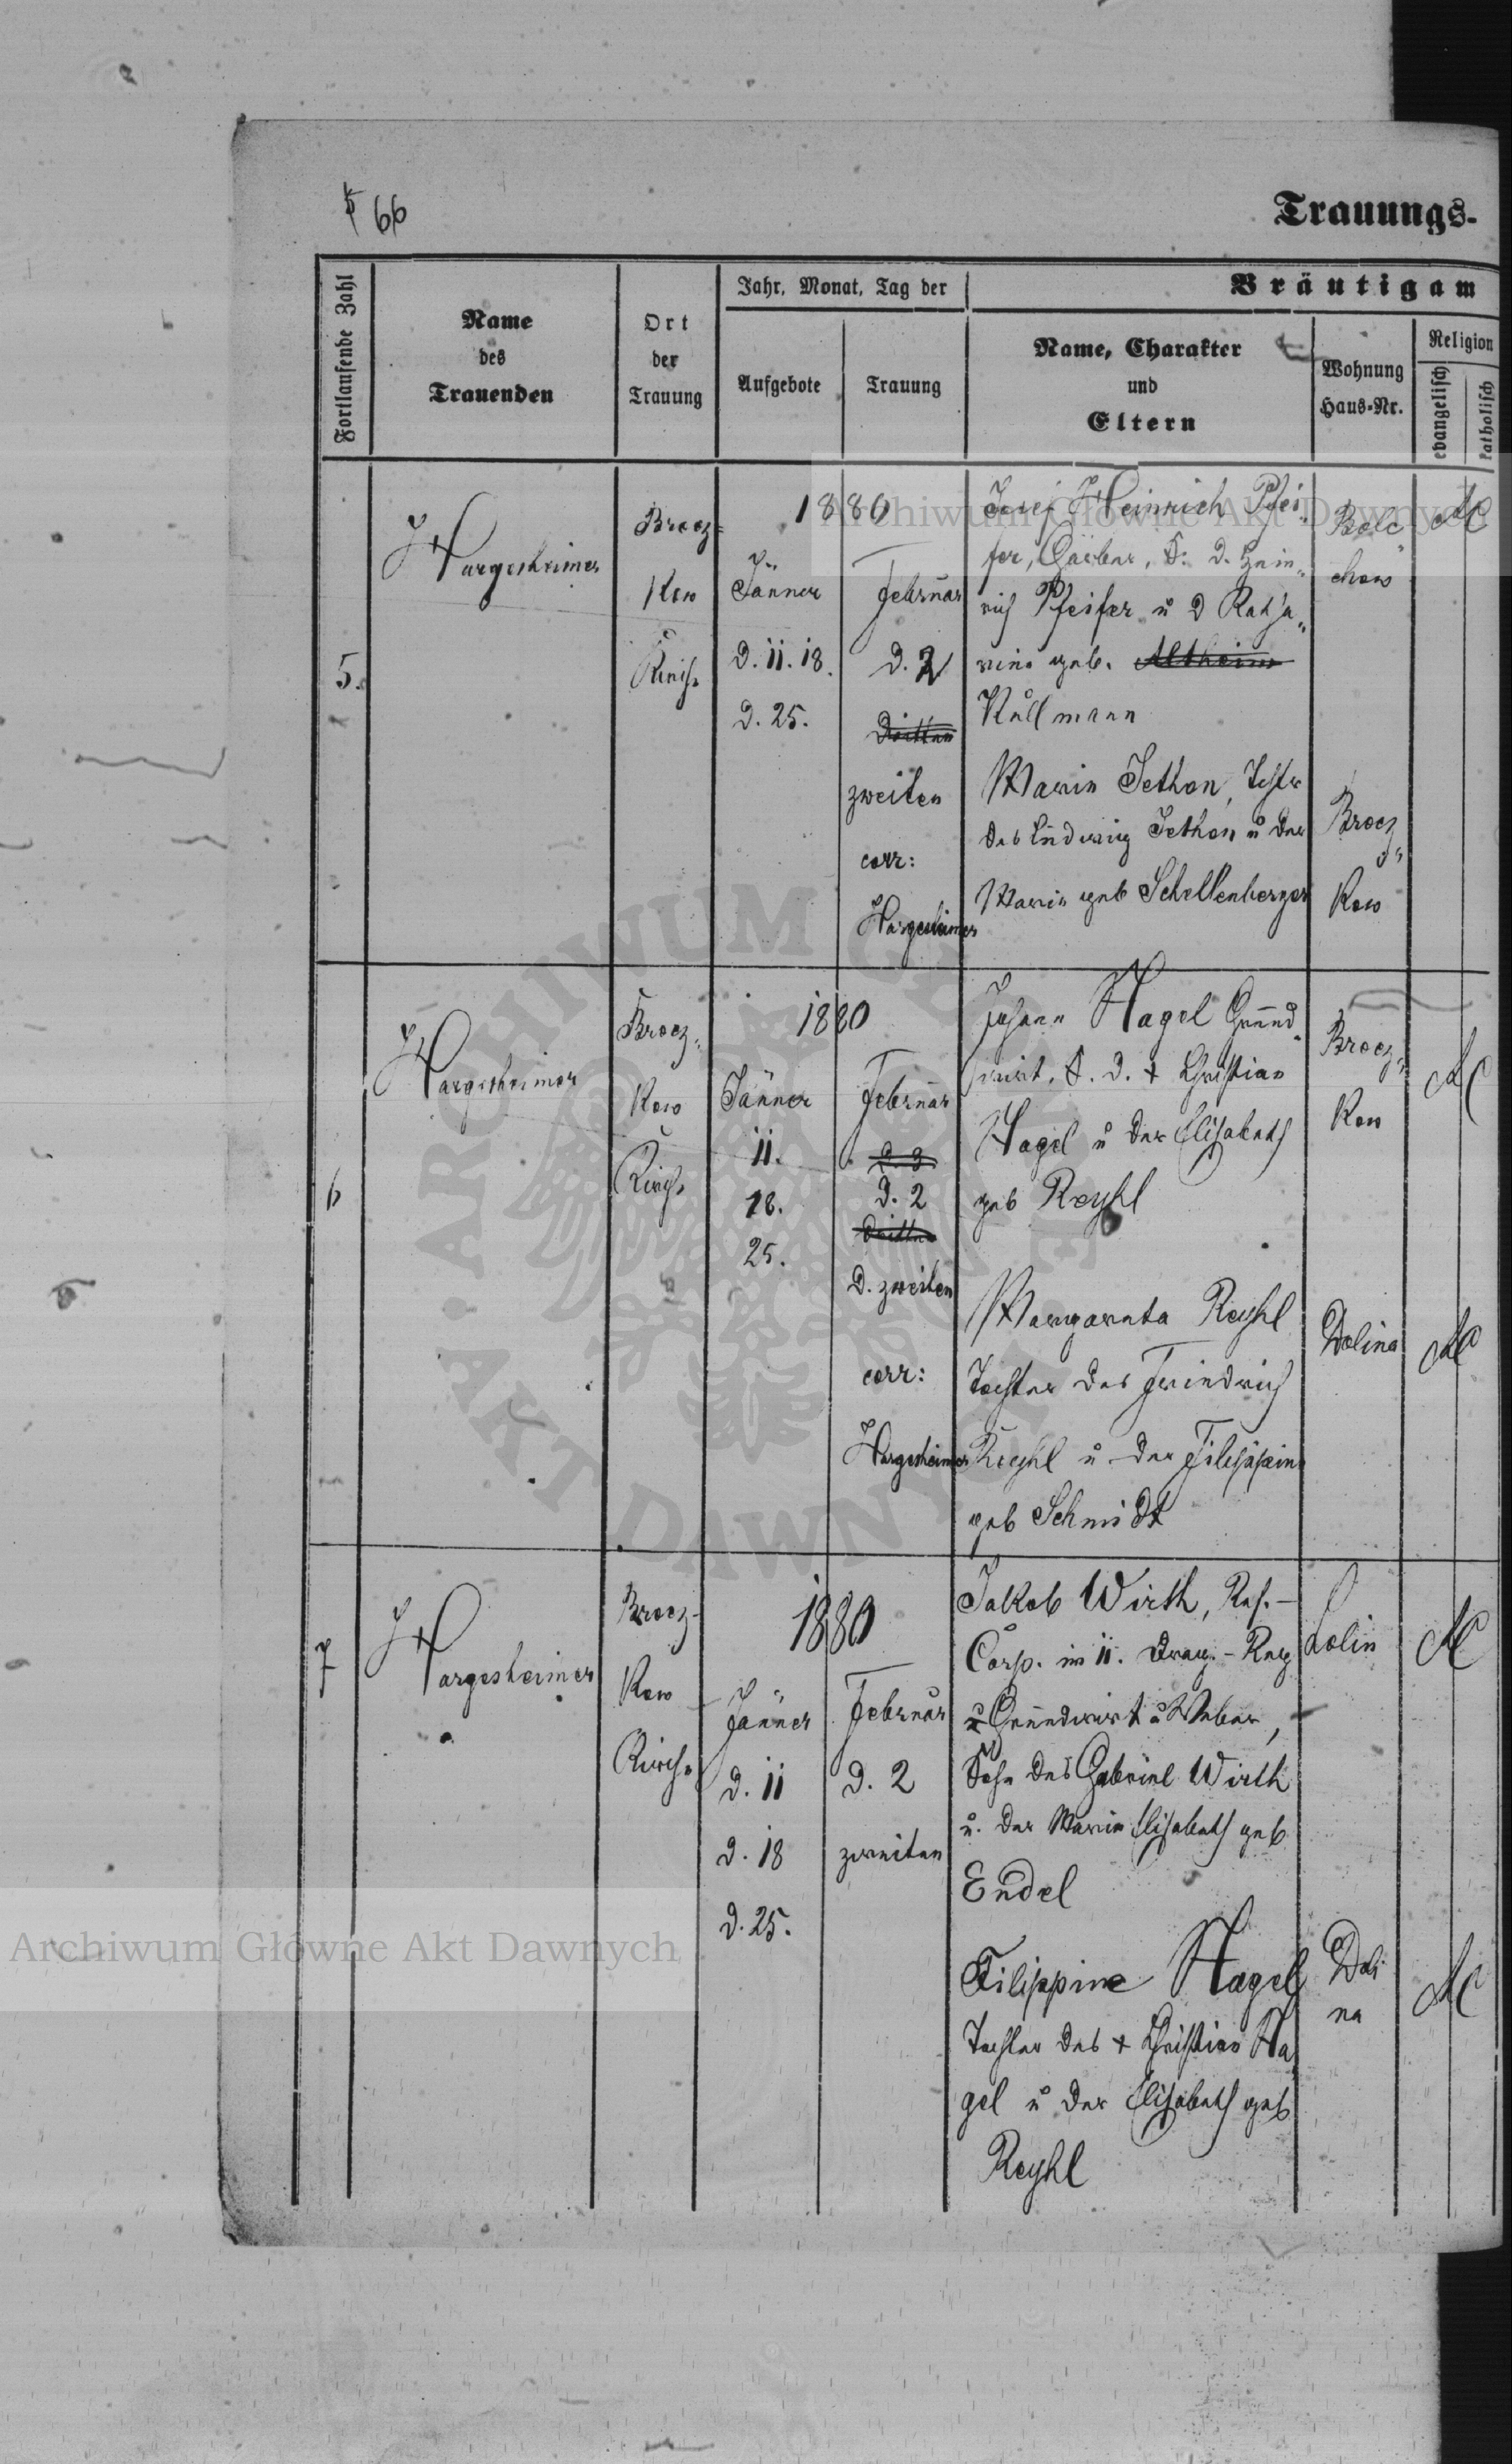 66
Trauungs-
Fortlaufende Zahl
Name
des
Trauenden
Ort
der
Trauung
Jahr, Monat, Tag der
Aufgebote
Trauung
Bräutigam
Name, Charakter
und
Eltern
Wohnung
Haus-Nr.
Religion
evangelisch
katholisch
5.
J Hargesheimer
Brocz-
kow
Kirche
1880
Jänner
D. 11. 18.
D. 25.
Februar
D. 2
Dritten
zweiten
corr:
Hargesheimer
Josef Heinrich Pfei-
fer, Gärber, S. D. Hein-
rich Pfeifer u D Katha-
rina geb. Altheim
Kullmann
Bole
chow
AC
Maria Jethon, Tochter
des Ludwig Jethon u der
Maria geb Schellenberger
Brocz
kow
6
J Hargesheimer
Brocz-
kow
Kirche
1880
Jänner
11.
18.
25.
Februar
D. 3
D. 2
Dritten
D. zweiten
corr:
Hargesheimer
Johann Nagel Grund-
wirt, S. D. + Christian
Nagel u der Elisabeth
geb Reyhl
Brocz-
kow
AC
Margareta Reyhl
Tochter des Friedrich
Reyhl u der Filippine
geb Schmidt
Dolina
AC
7
J Hargesheimer
Brocz-
kow
Kirche
1880
Jänner
D. 11
D. 18
D. 25.
Februar
D. 2
zweiten
Jakob Wirth, Res.-
Corp. im 11. Drag.-Reg
u Grundwirt u Weber,
Sohn des Gabriel Wirth
u. der Maria Elisabeth geb
Endel
AC
Filippine Nagel
Tochter des + Christian Na
gel u der Elisabeth geb
Reyhl
Doli
na
AC
Archiwum Główne Akt Dawnych
Archiwum Główne Akt Dawnych
ARCHIWUM GŁÓWNE
AKT DAWNYCH